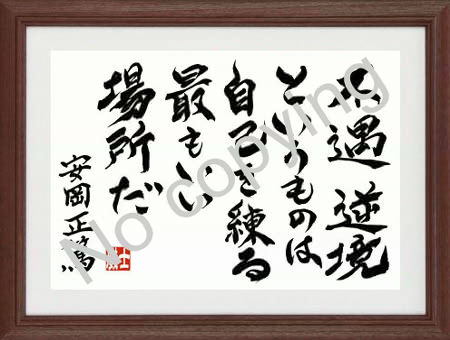 不遇 逆境
というものは
自己を練る
最もいい
場所だ
安岡正篤
No copying